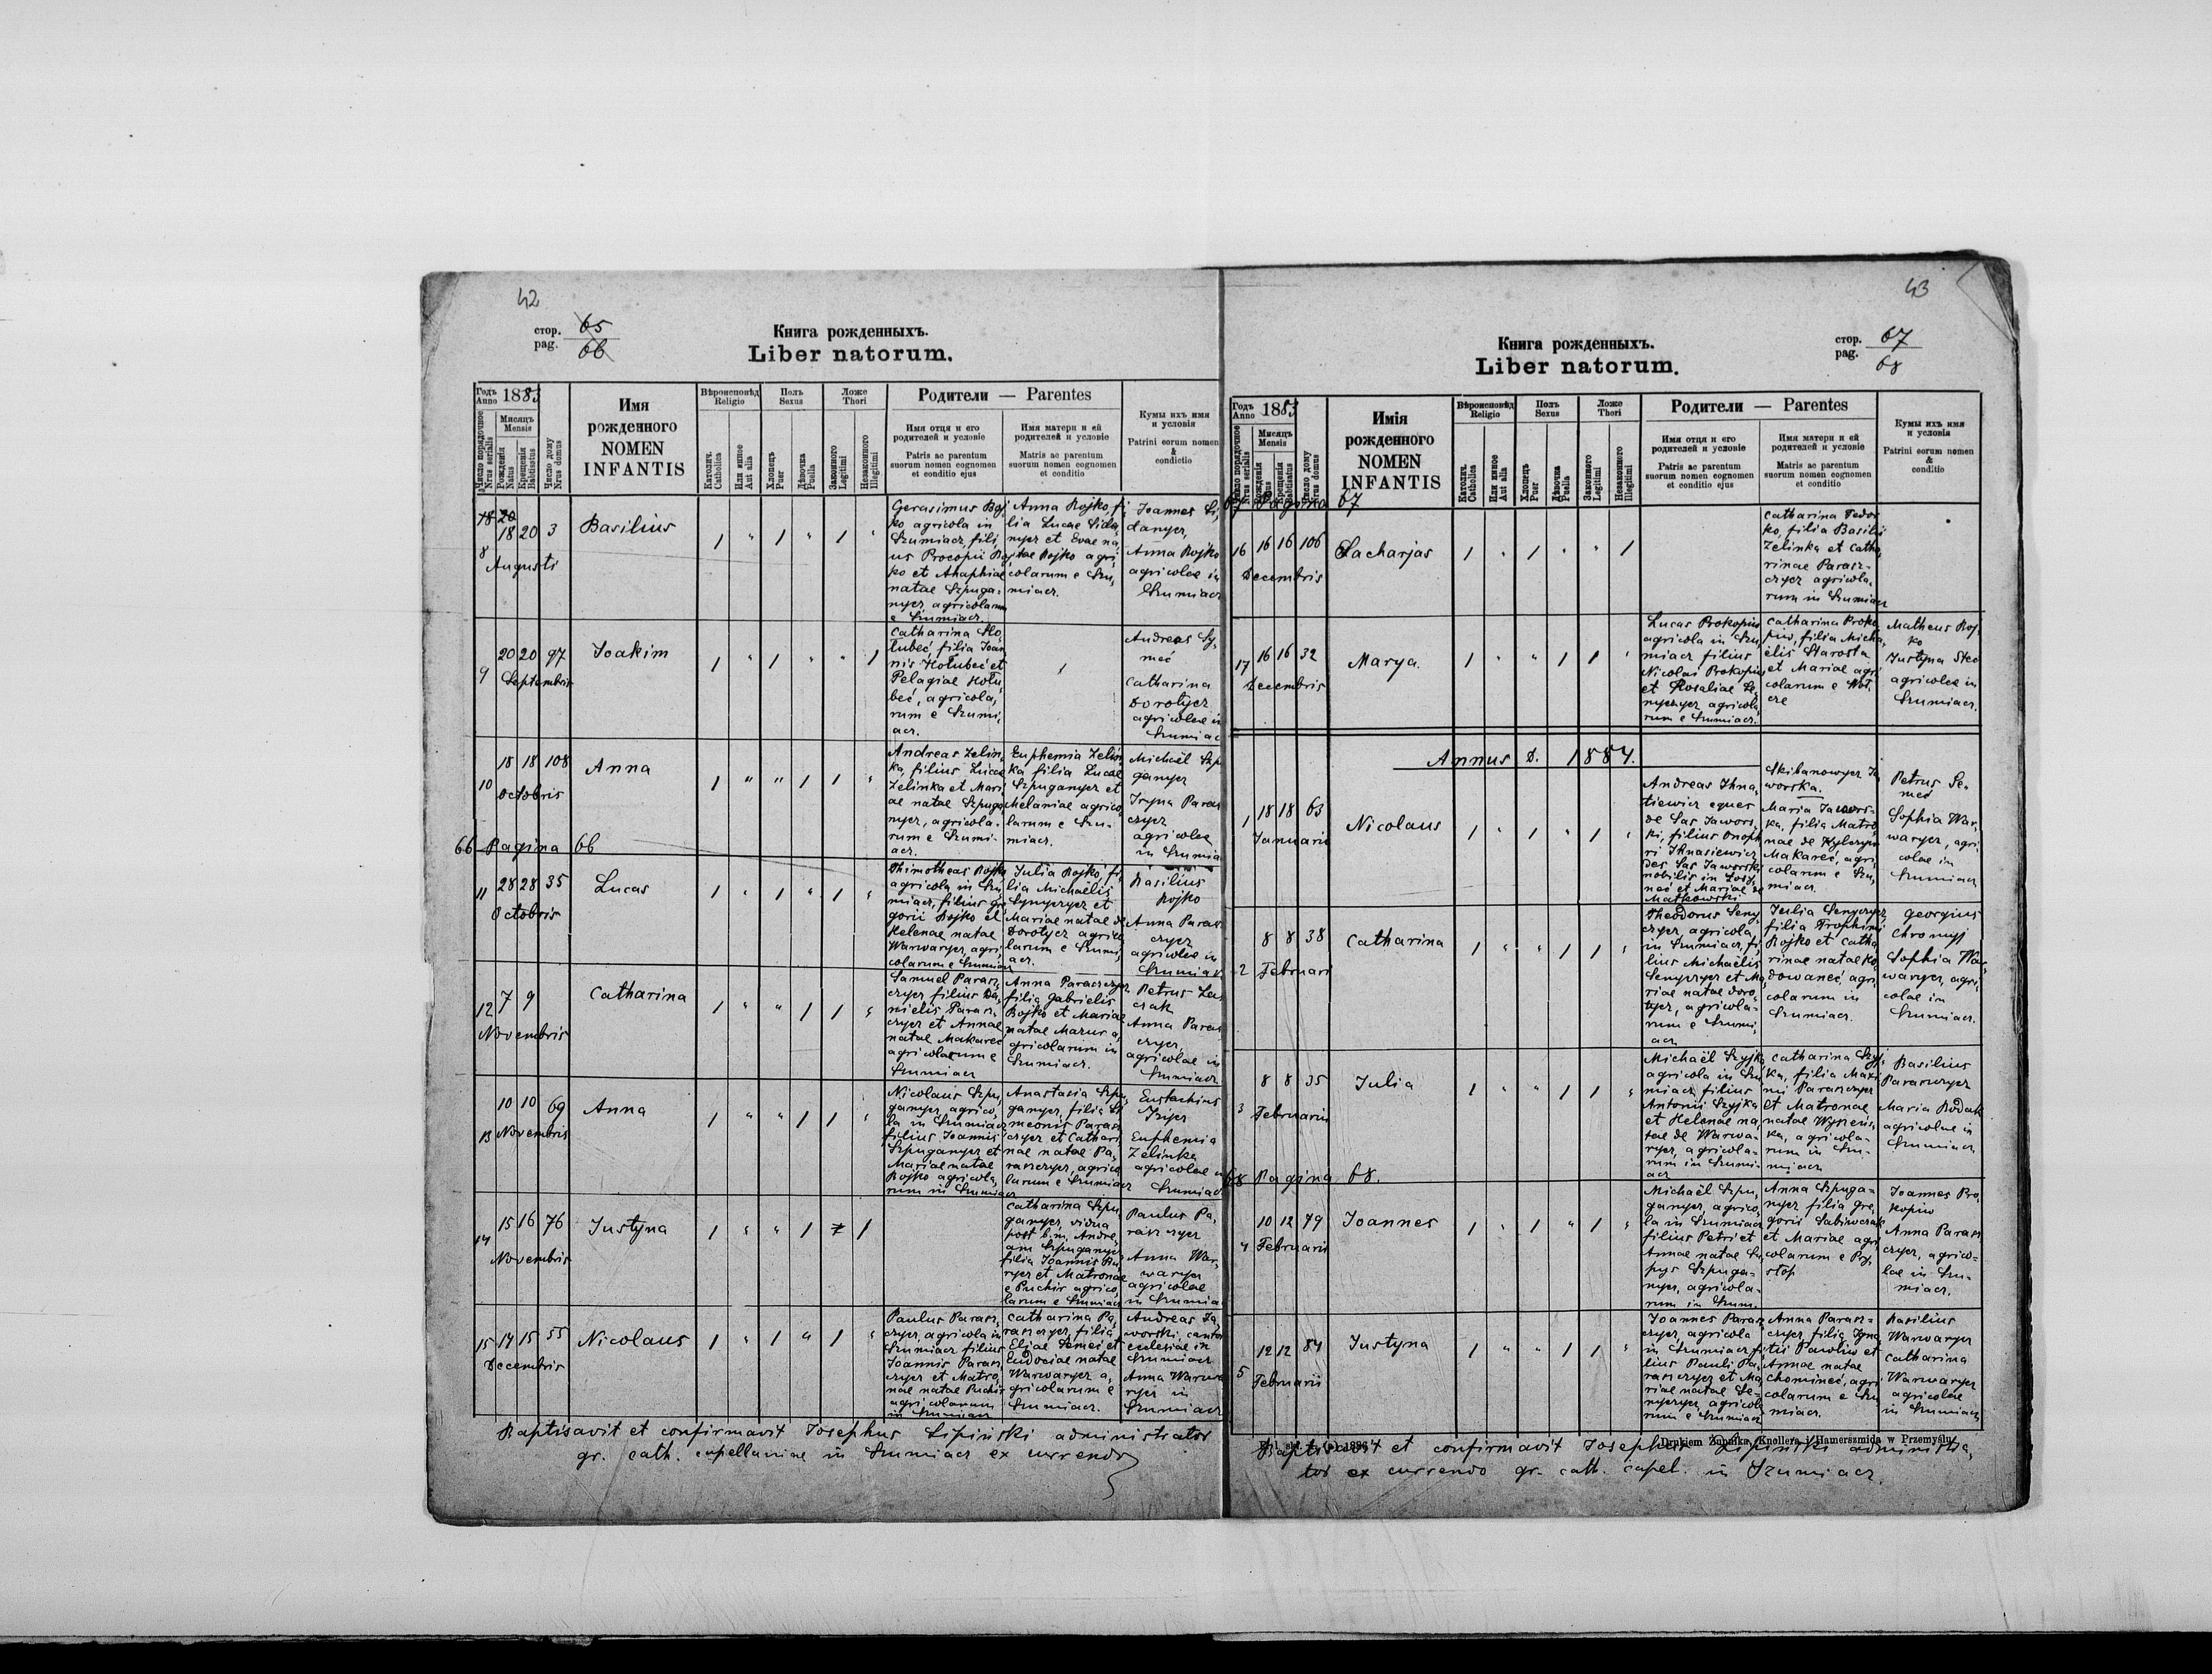 42
стор. 65
pag. 66
Книга рожденныхъ.
Liber natorum.
Годъ Anno 1883
Число порядочное Nrus serialis
Мисяцъ Mensis
Рождения Natus
Крещения Baptisatus
Число дому Nrus domus
Имя рожденного
NOMEN INFANTIS
Вѣроисповѣд Religio
Католич. Catholica
Или инное Aut alia
Полъ Sexus
Хлопецъ Puer
Дѣвочка Puella
Ложе Thori
Законного Legitimi
Незаконного Illegitimi
Родители — Parentes
Имя отця и его родителей и условіе
Patris ac parentum suorum nomen cognomen et conditio ejus
Имя матери и ей родителей и условіе
Matris ac parentum suorum nomen cognomen et conditio
Кумы ихъ имя и условія
Patrini eorum nomen & condictio
8
18 20 3
Augusti
Basilius
Gerasimus Boj
ko agricola in
Szumiacz, fili,
us Procopii Boj
ko et Ahaphiae
natae Szpuga-
nycz agricolarum
e Szumiacz.
Anna Bojko, fi
lia Lucae Lida,
nycz et Evae na,
tae Bojko agri,
colarum e Szu,
miacz.
Joannes Li,
danycz,
Anna Bojko
agricolae in
Szumiacz
9
20 20 97
Septembris
Joakim
Catharina Ho,
lubeć, filia Joan
nis Holubeć et
Pelagiae Holu,
beć, agricola,
rum e Szumi,
acz.
Andreas Sy,
meć
Catharina
Dorotycz
agricolae in
Szumiac
10
18 18 108
Octobris
Anna
Andreas Zelin,
ka, filius Lucae
Zelinka et Mari
ae natae Szpuga
nycz, agricola-
rum e Szumi-
acz.
Euphemia Zelin
ka filia Lucae
Szpuganycz et
Melaniae agrico
larum e Szu-
miacz.
Michaël Szp
ganycz
Iryna Paras
czycz
agricolae
in Szumia
66 Pagina 66
11
28 28 35
Octobris
Lucas
Thimotheas Bojko
agricola in Szu
miacz, filius Gre
gorii Bojko et
Helenae natae
Warwarycz, agri,
colarum e Szumiacz
Julia Bojko, fi,
lia Michaëlis
Senyczycz et
Mariae natae de
Dorotycz agrico
larum e Szumi,
acz.
Basilius
Bojko
Anna Paras
czycz
agricolae in
Szumiac
12
7 9
Novembris
Catharina
Samuel Parasz,
czycz filius Da,
nielis Parasz-
czycz et Annae
natae Makareć
agricolarum e
Szumiacz
Anna Paraszczycz
filia Gabrielis
Bojko et Mariae
natae Mazur a,
gricolarum in
Szumiacz.
Petrus Les
czak
Anna Paras
czycz,
agricolae in
Szumiacz
13
10 10 69
Novembris
Anna
Nicolaus Szpu,
ganycz, agrico,
la in Szumiacz
filius Joannis
Szpuganycz et
Mariae natae
Bojko agricola,
rum in Szumiacz
Anastasia Szpu,
ganycz, filia Si
meonis Parasz
czycz et Cathari
nae natae Pa-
raszczycz, agrico
larum e Szumiacz
Eustachius
Euphemia
Zelinka
agricolae in
Szumiac
14
15 16 76
Novembris
Justyna
Catharina Szpu
ganycz, vidua
post b.m. Andre
am Szpuganycz
filia Joannis Hu
rycz et Matronae
e Puchir agrico,
larum e Szumiacz
Paulus Pa,
raszczycz
Anna War,
warycz
agricolae
in Szumia
15
14 15 55
Decembris
Nicolaus
Paulus Parasz,
czycz, agricola in
Szumiacz filius
Joannis Parasz
czycz et Matro,
nae natae Puchir
agricolarum
in Szumiacz
Catharina Pa,
raszczycz, filia
Eliae Semeć et
Eudociae natae
Warwarycz a,
gricolarum e
Szumiacz.
Andreas Ja,
worski, cantor
eulesiae in
Szumiacz
Anna Warwa
rycz in
Szumiacz
Baptisavit et confirmavit Josephus Lipiński administrator
gr. cath. capellaniae in Szumiacz ex currendo
43
стор. 67
pag. 68
Книга рожденныхъ.
Liber natorum.
Годъ Anno 1883
Число порядочное Nrus serialis
Мисяцъ Mensis
Рождения Natus
Крещения Baptisatus
Число дому Nrus domus
Имія рожденного
NOMEN INFANTIS
Вѣроисповѣд Religio
Католич. Catholica
Или инное Aut alia
Полъ Sexus
Хлопецъ Puer
Дѣвочка Puella
Ложе Thori
Законного Legitimi
Незаконного Illegitimi
Родители — Parentes
Имя отця и его родителей и условіе
Patris ac parentum suorum nomen cognomen et conditio ejus
Имя матери и ей родителей и условіе
Matris ac parentum suorum nomen cognomen et conditio
Кумы ихъ имя и условія
Patrini eorum nomen & conditio
67 Pagina 67
16
16 16 106
Decembris
Zacharjas
Catharina Fedor
ko, filia Basilii
Zelinka et Catha,
rinae Parasz-
czycz agricola-
rum in Szumiacz
17
16 16 32
Decembris
Marya
Lucas Prokopiw
agricola in Szu,
miacz filius
Nicolai Prokopiw
et Rosaliae Se,
nyczycz agricola
rum e Szumiacz.
Catharina Proko
piw, filia Micha,
ëlis Starosta
et Mariae agri
colarum e Wol,
cze
Matheus Boj,
ko
Justyna Stec
agricolae in
Szumiacz.
Annus D. 1884.
1
18 18 63
Januarii
Nicolaus
Andreas Ihna,
tiewicz eques
de Sas Jawors,
ki, filius Onoph
ri Ihnasiewicz
des Sas Jaworski
nobilis in
et Mariae de
Matkowski
Skibanowycz Ja
worska.
Maria Jawors-
ka, filia Matro
nae de Kylczycz
Makareć, agri,
colarum e Szu,
miacz.
Petrus Se-
meć
Sophia War,
warycz, agri,
colae in
Szumiacz
2
8 8 38
Februari
Catharina
Theodorus Seny,
czycz, agricola,
in Szumiacz, fi
lius Michaëlis
Senyczycz et Ma,
riae natae Doro,
tycz, agricola-
rum e Szumi,
acz
Julia Senyczycz,
filia Trophimi
Bojko et Catha
rinae natae Ko,
dowaneć, agri,
colarum in
Szumiacz.
Georgius
Chromyj
Sophia War
warycz, agri,
colae in
Szumiacz.
3
8 8 35
Februarii
Julia
Michaël Szyjka
agricola in Szu
miacz filius
Antonii Szyjka
et Helenae na,
tae de Warwa-
rycz, agricola-
rum in Szumi-
acz
Catharina Szyj,
ka, filia Maxi
mi Paraszczycz
et Matronae
natae Wyszeńs
ka, agricola-
rum in Szu-
miacz
Basilius
Paraszczycz
Maria Rodak
agricolae in
Szumiacz
68 Pagina 68.
4
10 12 79
Februarii
Joannes
Michaël Szpu,
ganycz, agrico,
la in Szumiacz
filius Petri et
Annae natae Su
pys Szpuga-
nycz, agricola-
rum in Szum.
Anna Szpuga-
nycz filia Gre,
gorii Sabiwczak
et Mariae agri
colarum e Pry,
stop
Joannes Pro,
kopiw
Anna Parasz
czycz, agrico-
lae in Szu-
miacz.
5
12 12 84
Februarii
Justyna
Joannes Parasz
czycz, agricola
in Szumiacz fi,
lius Pauli Pa,
raszczycz et Ma
riae natae Se-
nyczycz, agricola
rum e Szumiacz
Anna Parasz-
czycz filia Igna,
tii Pawliw et
Annae natae
Chomineć, agri
colarum e Szu
miacz.
Basilius
Warwarycz
Catharina
Warwarycz
agricolae
in Szumiacz
Drukiem Żupnika, Knollera i Hamerszmida w Przemyślu.
Baptisavit et confirmavit Josephus Lipiński administra,
tor ex currendo gr. cath. capel. in Szumiacz.